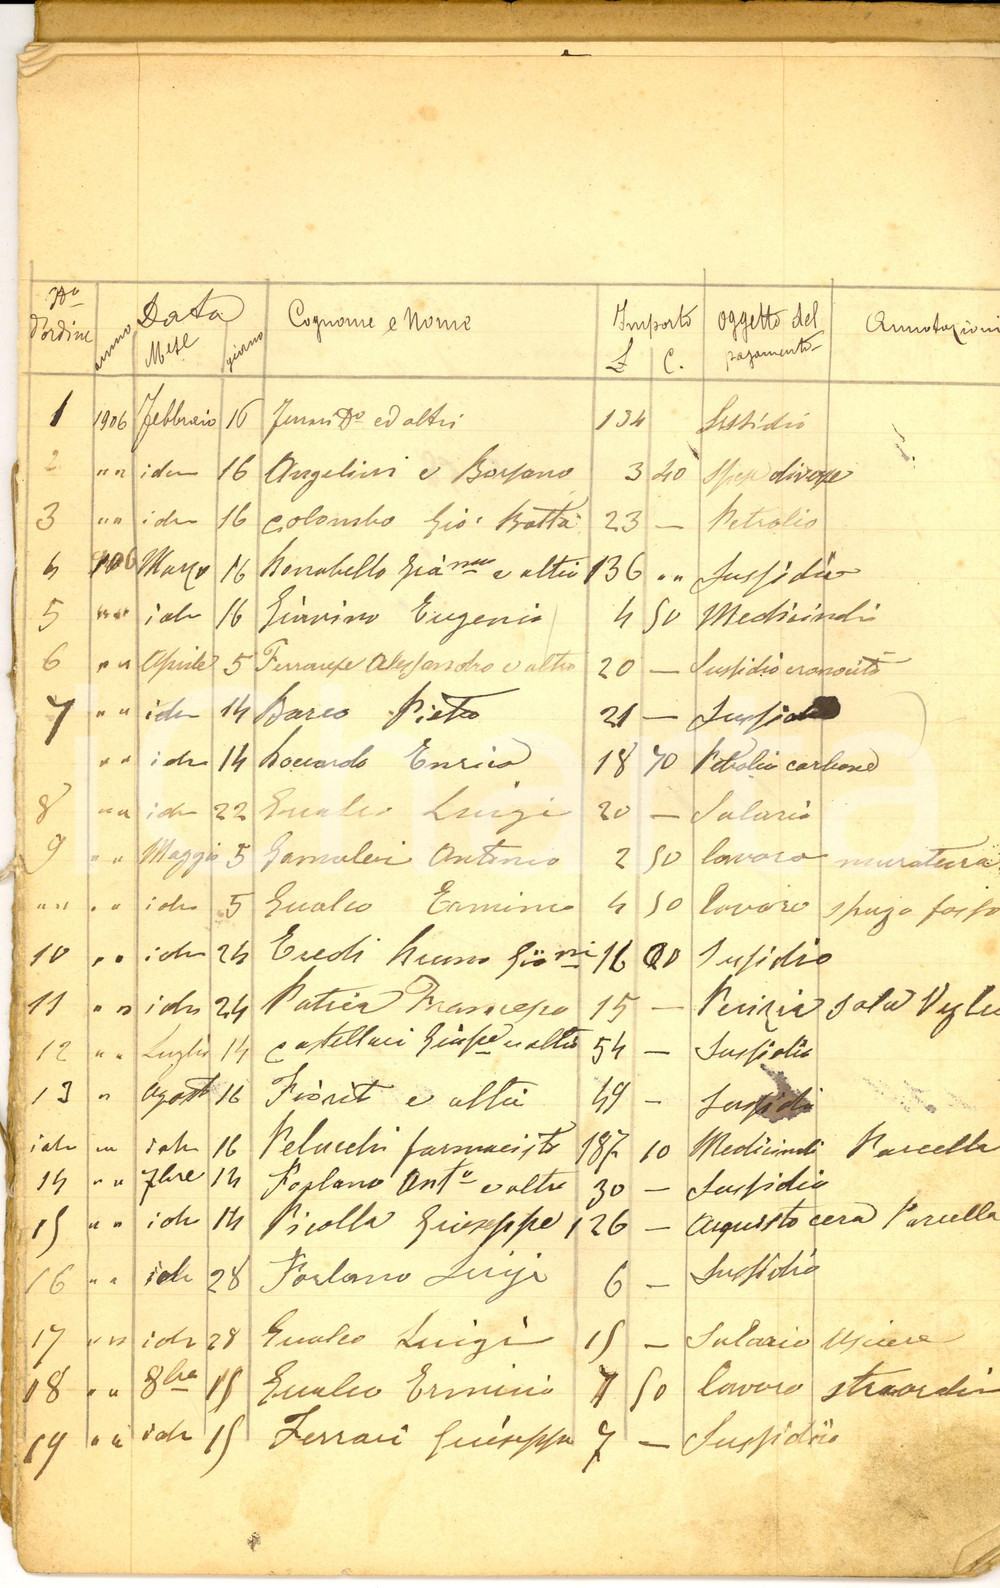 No d'ordine anno Data Mese giorno Cognome e Nome Importo £ C. Oggetto del pagamento Annotazioni
1 1906 Febbraio 16 ed altri 134 Sussidio
2 " " idem 16 Angelini e Borsano 3 40 Spese diverse
3 " " idem 16 Colombo Gio: Batta 23 — Petrolio
4 906 Marzo 16 e altri 136 " " Sussidio
5 " " idem 16 Eugenio 4 50 Medicinali
6 " " Aprile 5 Alessandro e altri 20 — Sussidio
7 " " idem 14 Barco Pietro 21 — Sussidio
" " idem 14 Enrico 18 70 Petrolio carbone
8 " " idem 22 Gualco Luigi 20 — Salario
9 " " Maggio 5 Gamaleri Antonio 2 50 lavoro muratura
" " " " idem 5 Gualco Erminio 4 50 lavoro spurgo fosso
10 " " idem 24 Eredi 16 Sussidio
11 " " idem 24 Patria Francesco 15 — Perizia sala
12 " " Luglio 14 Castellari Giuspe e altri 54 — Sussidio
13 " Agosto 16 e altri 49 — Sussidi
idem " " idem 16 Pelucchi farmacista 187 10 Medicinali Parcella
14 " " 7bre 14 Forlano Anto e altri 30 — Sussidio
15 " " idem 14 Picolla Giuseppe 126 — Acquisto cera Parcella
16 " " idem 28 Forlano Luigi 6 — Sussidio
17 " " idem 28 Gualco Luigi 15 — Salario Usciere
18 " " 8bre 15 Gualco Erminio 7 50 lavoro straordin
19 " " idem 15 Ferrari Giuseppe 7 — Sussidio